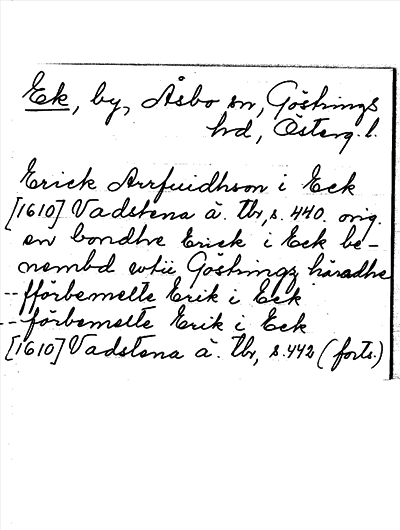 Ek, by, Åsbo sn, Göstrings
hd, Österg. l.
Erick Arffuidhson i Eck
[1610] Vadstena ä. tbr, s. 440. orig.
en bondhe Erick i Eck be-
nembd utii Göstringz häradhe
-- fförbemelte Erik i Eck
-- förbemelte Erik i Eck
[1610] Vadstena ä. tbr, s. 442 (forts.)